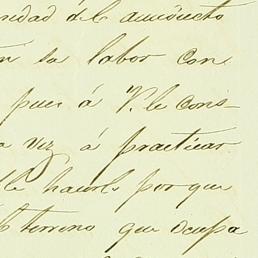 nidad del acueducto
en sa labor con
pues á V. le cons-
a vez á practicar
le hacerlo por que
terreno que ocupa